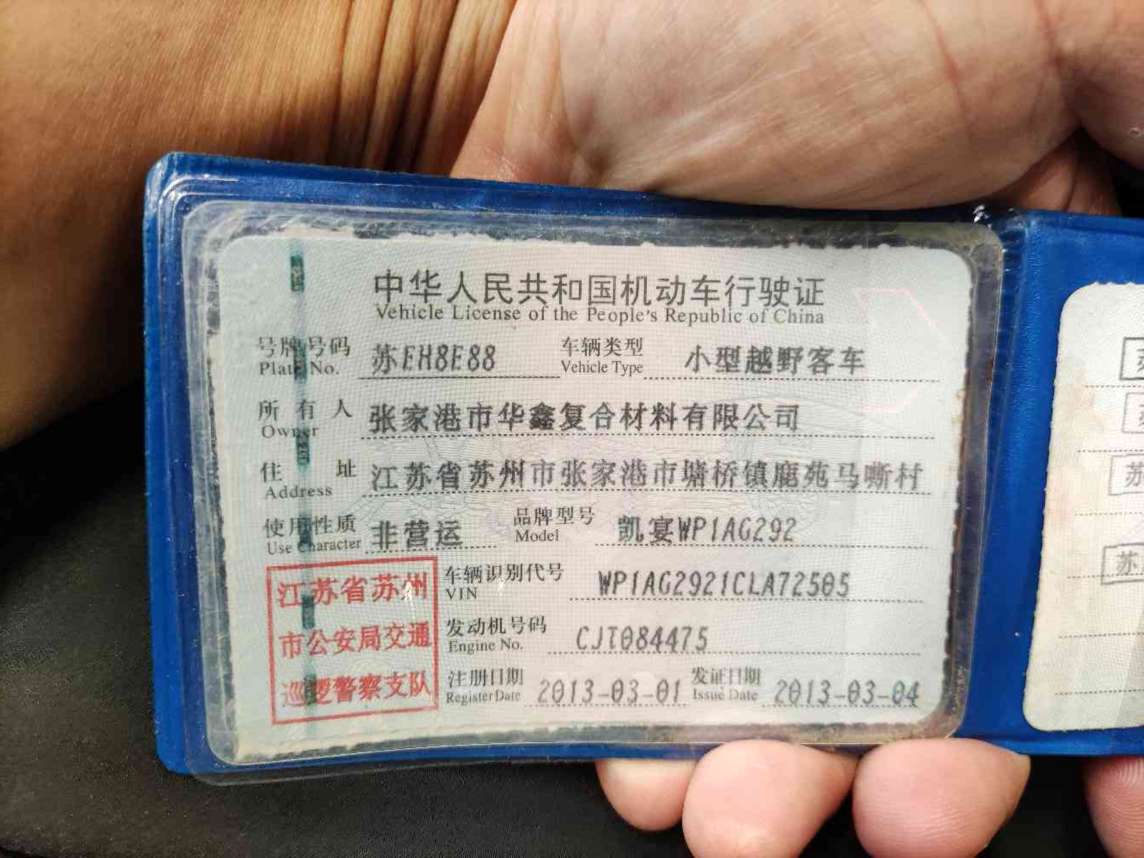 中华人民共和国机动车行驶证
Vehicle License of the People's Republic of China
号牌号码 苏EH8E88 车辆类型 小型越野客车
Plate No. Vehicle Type
所有人 张家港市华鑫复合材料有限公司
Owner
住址 江苏省苏州市张家港市塘桥镇鹿苑马嘶村
Address
使用性质 非营运 品牌型号 凯宴WP1AG292
Use Character Model
江苏省苏州
市公安局交通
巡逻警察支队
车辆识别代号 WP1AG2921CLA72505
VIN
发动机号码 CJT084475
Engine No.
注册日期 2013-03-01 发证日期 2013-03-04
Register Date Issue Date
苏